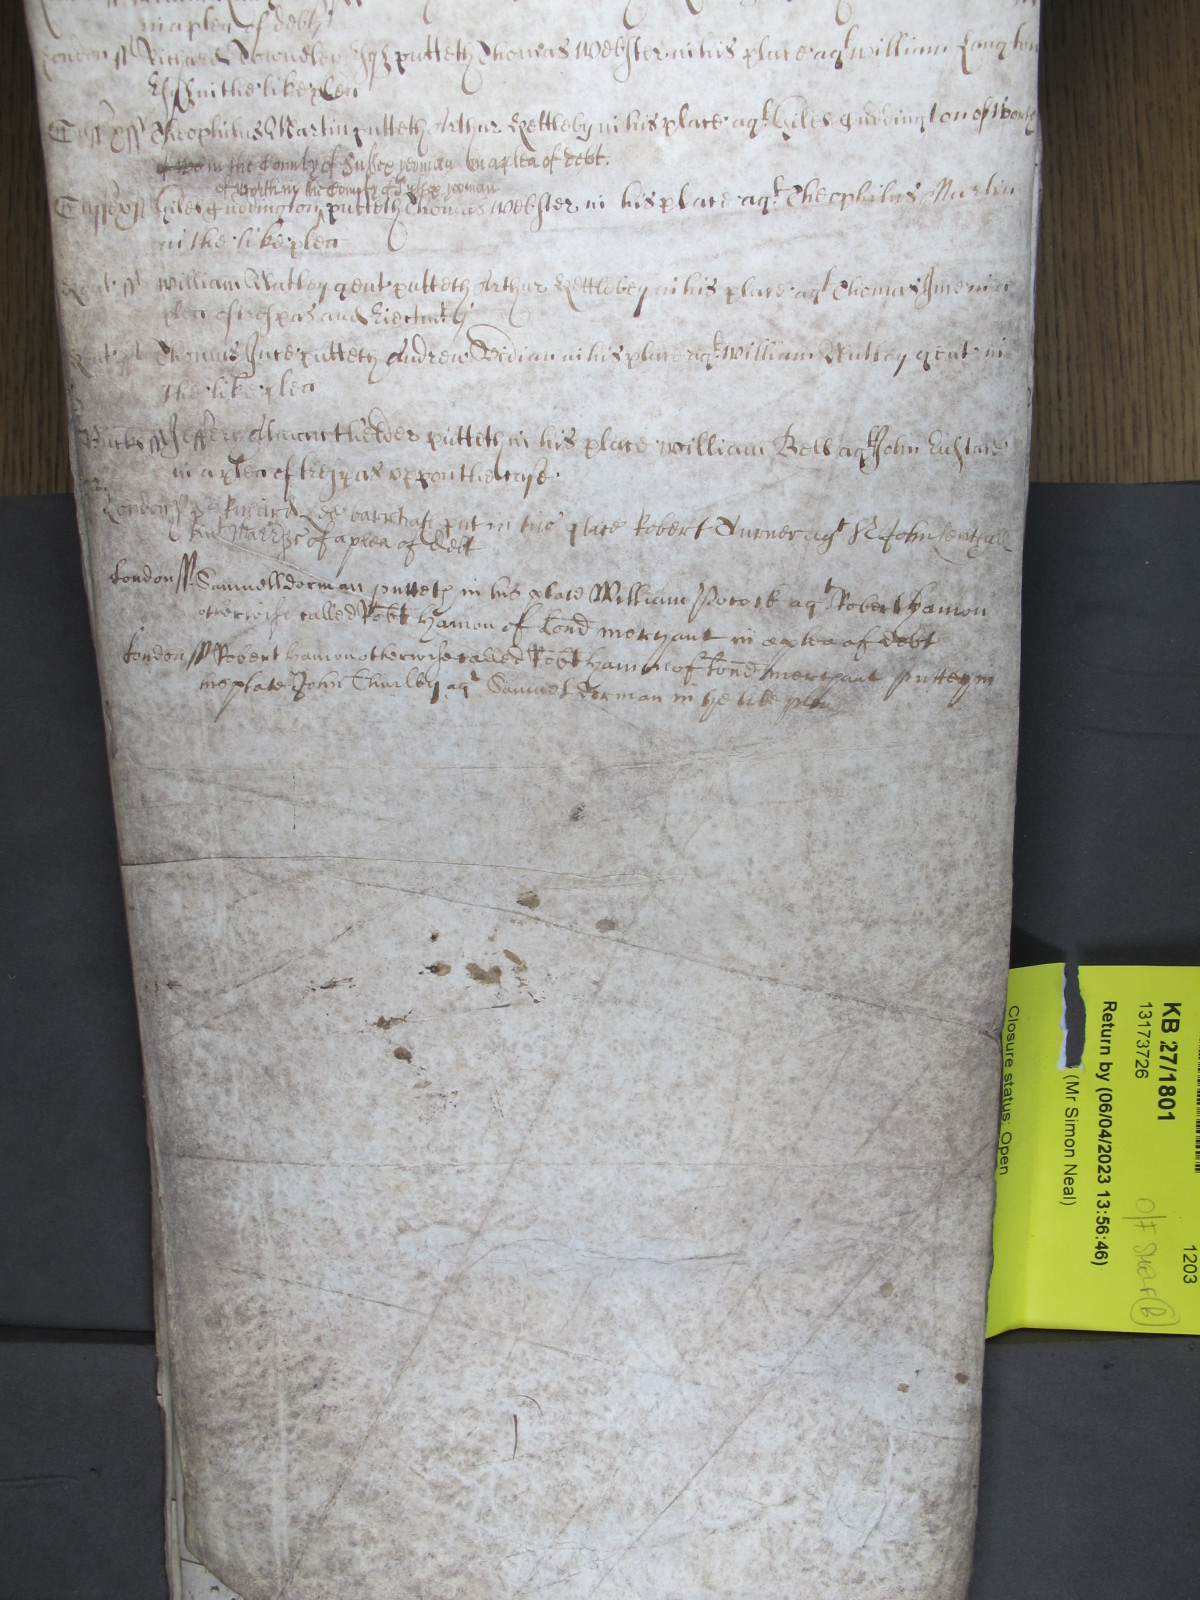 in a plea of debt
London ss Richard Esqr putteth Thomas Webster in his place agt William Langton
Esqr in the like plea
Sussex ss Theophilus Martin putteth Arthur Kettleby in his place agt Giles Guddington of Worth
in the County of Sussex yeoman in a plea of debt.
of Worth in the County of Sussex yeoman
Sussex ss Giles Guddington putteth Thomas Webster in his place agt Theophilus Martin
in the like plea
Kent ss William gent putteth Arthur Kettleby in his place agt Thomas in a
plea of trespas and Eiectmt
Kent ss Thomas putteth Andrew in his place agt William gent in
the like plea
Bucks ss putteth in his place William Bell agt John
in a plea of trespas uppon the case
London ss put in his place Robert Turner agt Sr John Lenthall
Knt of a plea of debt
London ss Samuell dorman putteth in his place William Pocock agt Robert Hamon
otterwise called Robt Hamon of Lond merchant in a plea of debt
London ss Robert Hamon otterwise called Robt Hamon of Lond merchant putteth in
his place John Thurley agt Samuel dorman in the like plea
KB 27/1801
13173726
Return by (06/04/2023 13:56:46)
(Mr Simon Neal)
Closure status: Open
1203